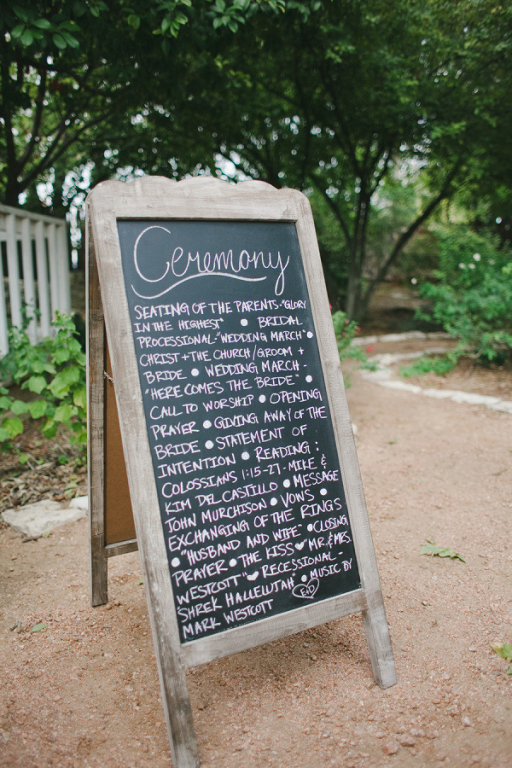 Ceremony
SEATING OF THE PARENTS-"GLORY
IN THE HIGHEST" • BRIDAL
PROCESSIONAL-"WEDDING MARCH" •
CHRIST + THE CHURCH/GROOM +
BRIDE • WEDDING MARCH -
"HERE COMES THE BRIDE" •
CALL TO WORSHIP • OPENING
PRAYER • GIVING AWAY OF THE
BRIDE • STATEMENT OF
INTENTION • READING :
COLOSSIANS 1:15-27 - MIKE &
KIM DEL CASTILLO • MESSAGE
JOHN MURCHISON • VOWS •
EXCHANGING OF THE RINGS
• "HUSBAND AND WIFE" • CLOSING
PRAYER • THE KISS ♥ MR. & MRS.
WESTCOTT ♥ RECESSIONAL -
SHREK HALLELUJAH • MUSIC BY
MARK WESTCOTT